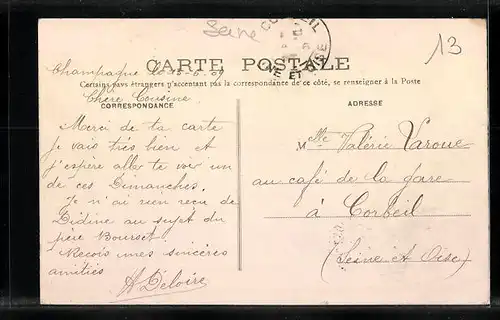 Seine
CORBEIL
13
CARTE POSTALE
ET OISE
Champagne le
Certains pays étrangers n'acceptant pas la correspondance de ce côté, se renseigner à la Poste
Chère Cousine
CORRESPONDANCE
ADRESSE
Merci de ta carte
je vais très bien et
j'espère aller te voir un
de ces Dimanches.
Je n'ai rien reçu de
Didine au sujet du
père Bourset
Reçois mes sincères
amitiés
A Deloire
Melle Valérie Varoue
au café de la gare
à Corbeil
(Seine et Oise)